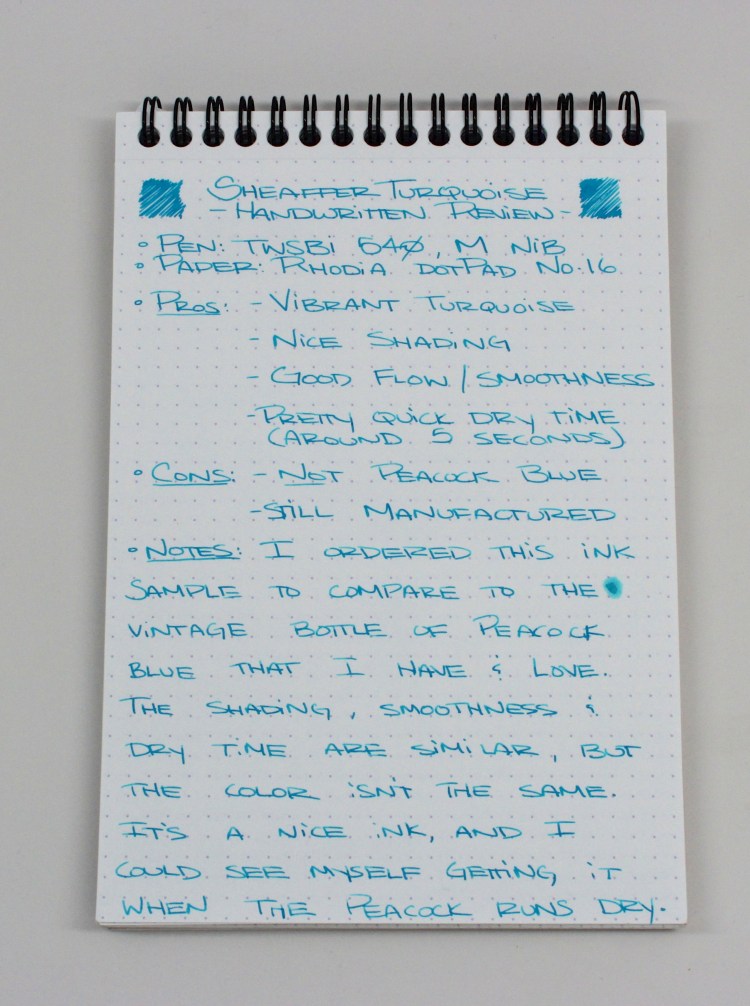 SHEAFFER TURQUOISE
- HANDWRITTEN REVIEW -
• PEN: TWSBI 540, M NIB
• PAPER: RHODIA DOTPAD NO. 16
• PROS: - VIBRANT TURQUOISE
- NICE SHADING
- GOOD FLOW / SMOOTHNESS
- PRETTY QUICK DRY TIME
(AROUND 5 SECONDS)
• CONS: - NOT PEACOCK BLUE
- STILL MANUFACTURED
• NOTES: I ORDERED THIS INK
SAMPLE TO COMPARE TO THE
VINTAGE BOTTLE OF PEACOCK
BLUE THAT I HAVE & LOVE.
THE SHADING, SMOOTHNESS &
DRY TIME ARE SIMILAR, BUT
THE COLOR ISN'T THE SAME.
IT'S A NICE INK, AND I
COULD SEE MYSELF GETTING IT
WHEN THE PEACOCK RUNS DRY.